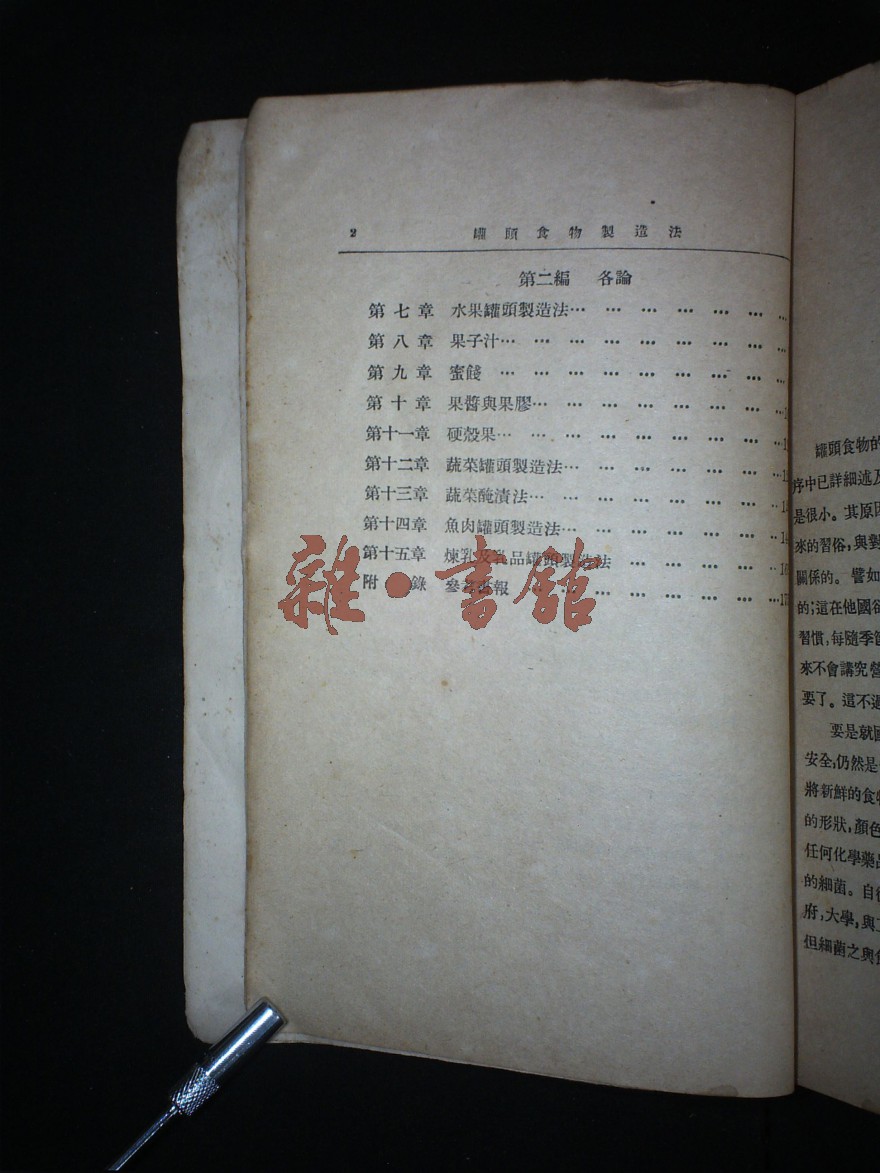 2 罐頭食物製造法
第二編 各論
第七章 水果罐頭製造法… … … … … … …
第八章 果子汁… … … … … … … … …
第九章 蜜餞 … … … … … … … … …
第十章 果醬與果膠… … … … … … … …
第十一章 硬殼果… … … … … … … … …
第十二章 蔬菜罐頭製造法… … … … … … …
第十三章 蔬菜醃漬法… … … … … … … …
第十四章 魚肉罐頭製造法… … … … … … …
第十五章 煉乳及乳品罐頭製造法 … … … … …
附錄 參考書報 … … … … … … … …
雜·書館
罐頭食物的
序中已詳細述及
是很小。其原因
來的習俗,與對
關係的。譬如
的;這在他國卻
習慣,每隨季節
來不會講究營
要了。這不過
要是就國
安全,仍然是
將新鮮的食物
的形狀,顏色
任何化學藥品
的細菌。自從
府,大學,與工
但細菌之與食